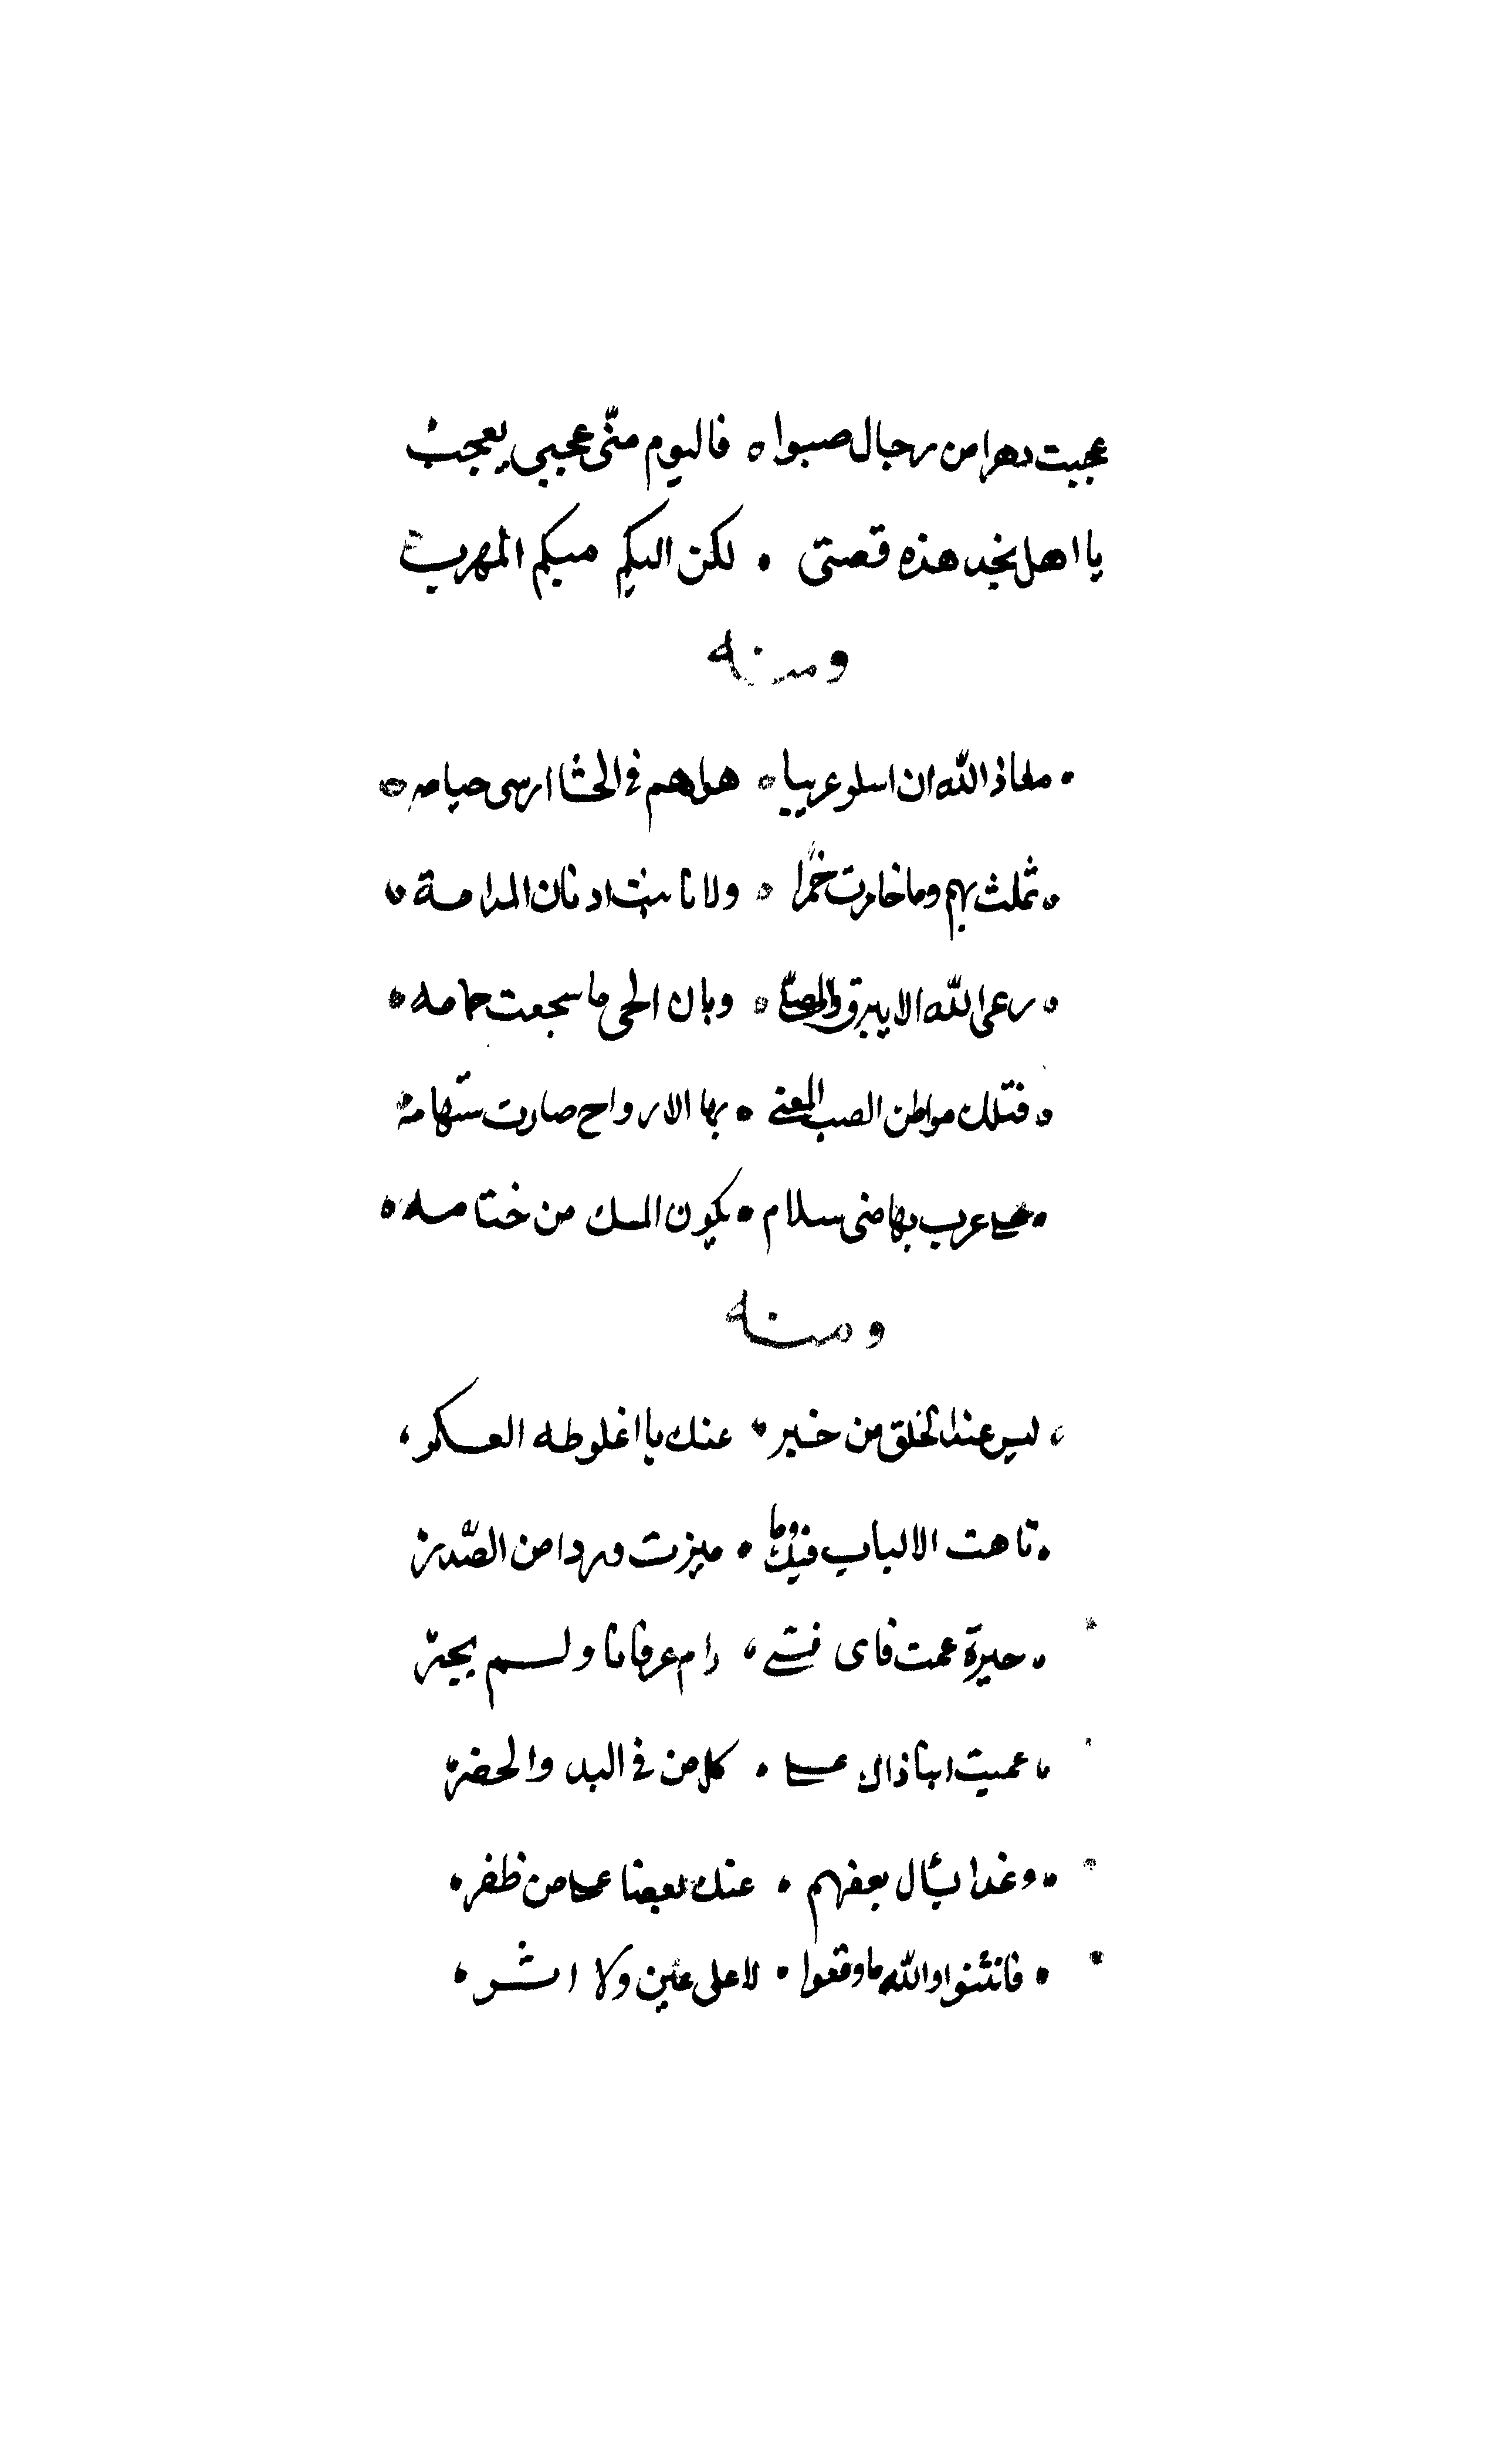 عجبت دهرا من رجال صبوا ه فاليوم منّى عجبى يعجب
يا اهل نجد هذه قصتى . لكن اليكم منكم المهرب
ومنه
معاذ الله ان اسلو عريبا ه هواهم فى الحشا ارسى خيامه
ثملت بهم وما خامرت خمرا ه ولا نا بنت ادنان المدامة
رعى الله الا يبرق والمصلّى ه وبان الحى ما سجعت حمامه
فتلك مواطن الصب المعنى . بها الارواح صارت ستهامة
على عرب بها منى سلام . يكون المسك من ختامه
ومنه
ليس عند الخلق من خبر عنك يا اغلوطه الفكر
تاهت الالباب فيك وما . ميزت وردا من الصدر
حيرة عمت فاى فتى رام عرفانا ولم يجر
عميت انباذاك على . كل من فى البدو والحضر
وغدا يسأل بعضهم . عنك بعضا عمن ظفر
فانثنوا والله ما وقعوا . لا على عين ولا اثر